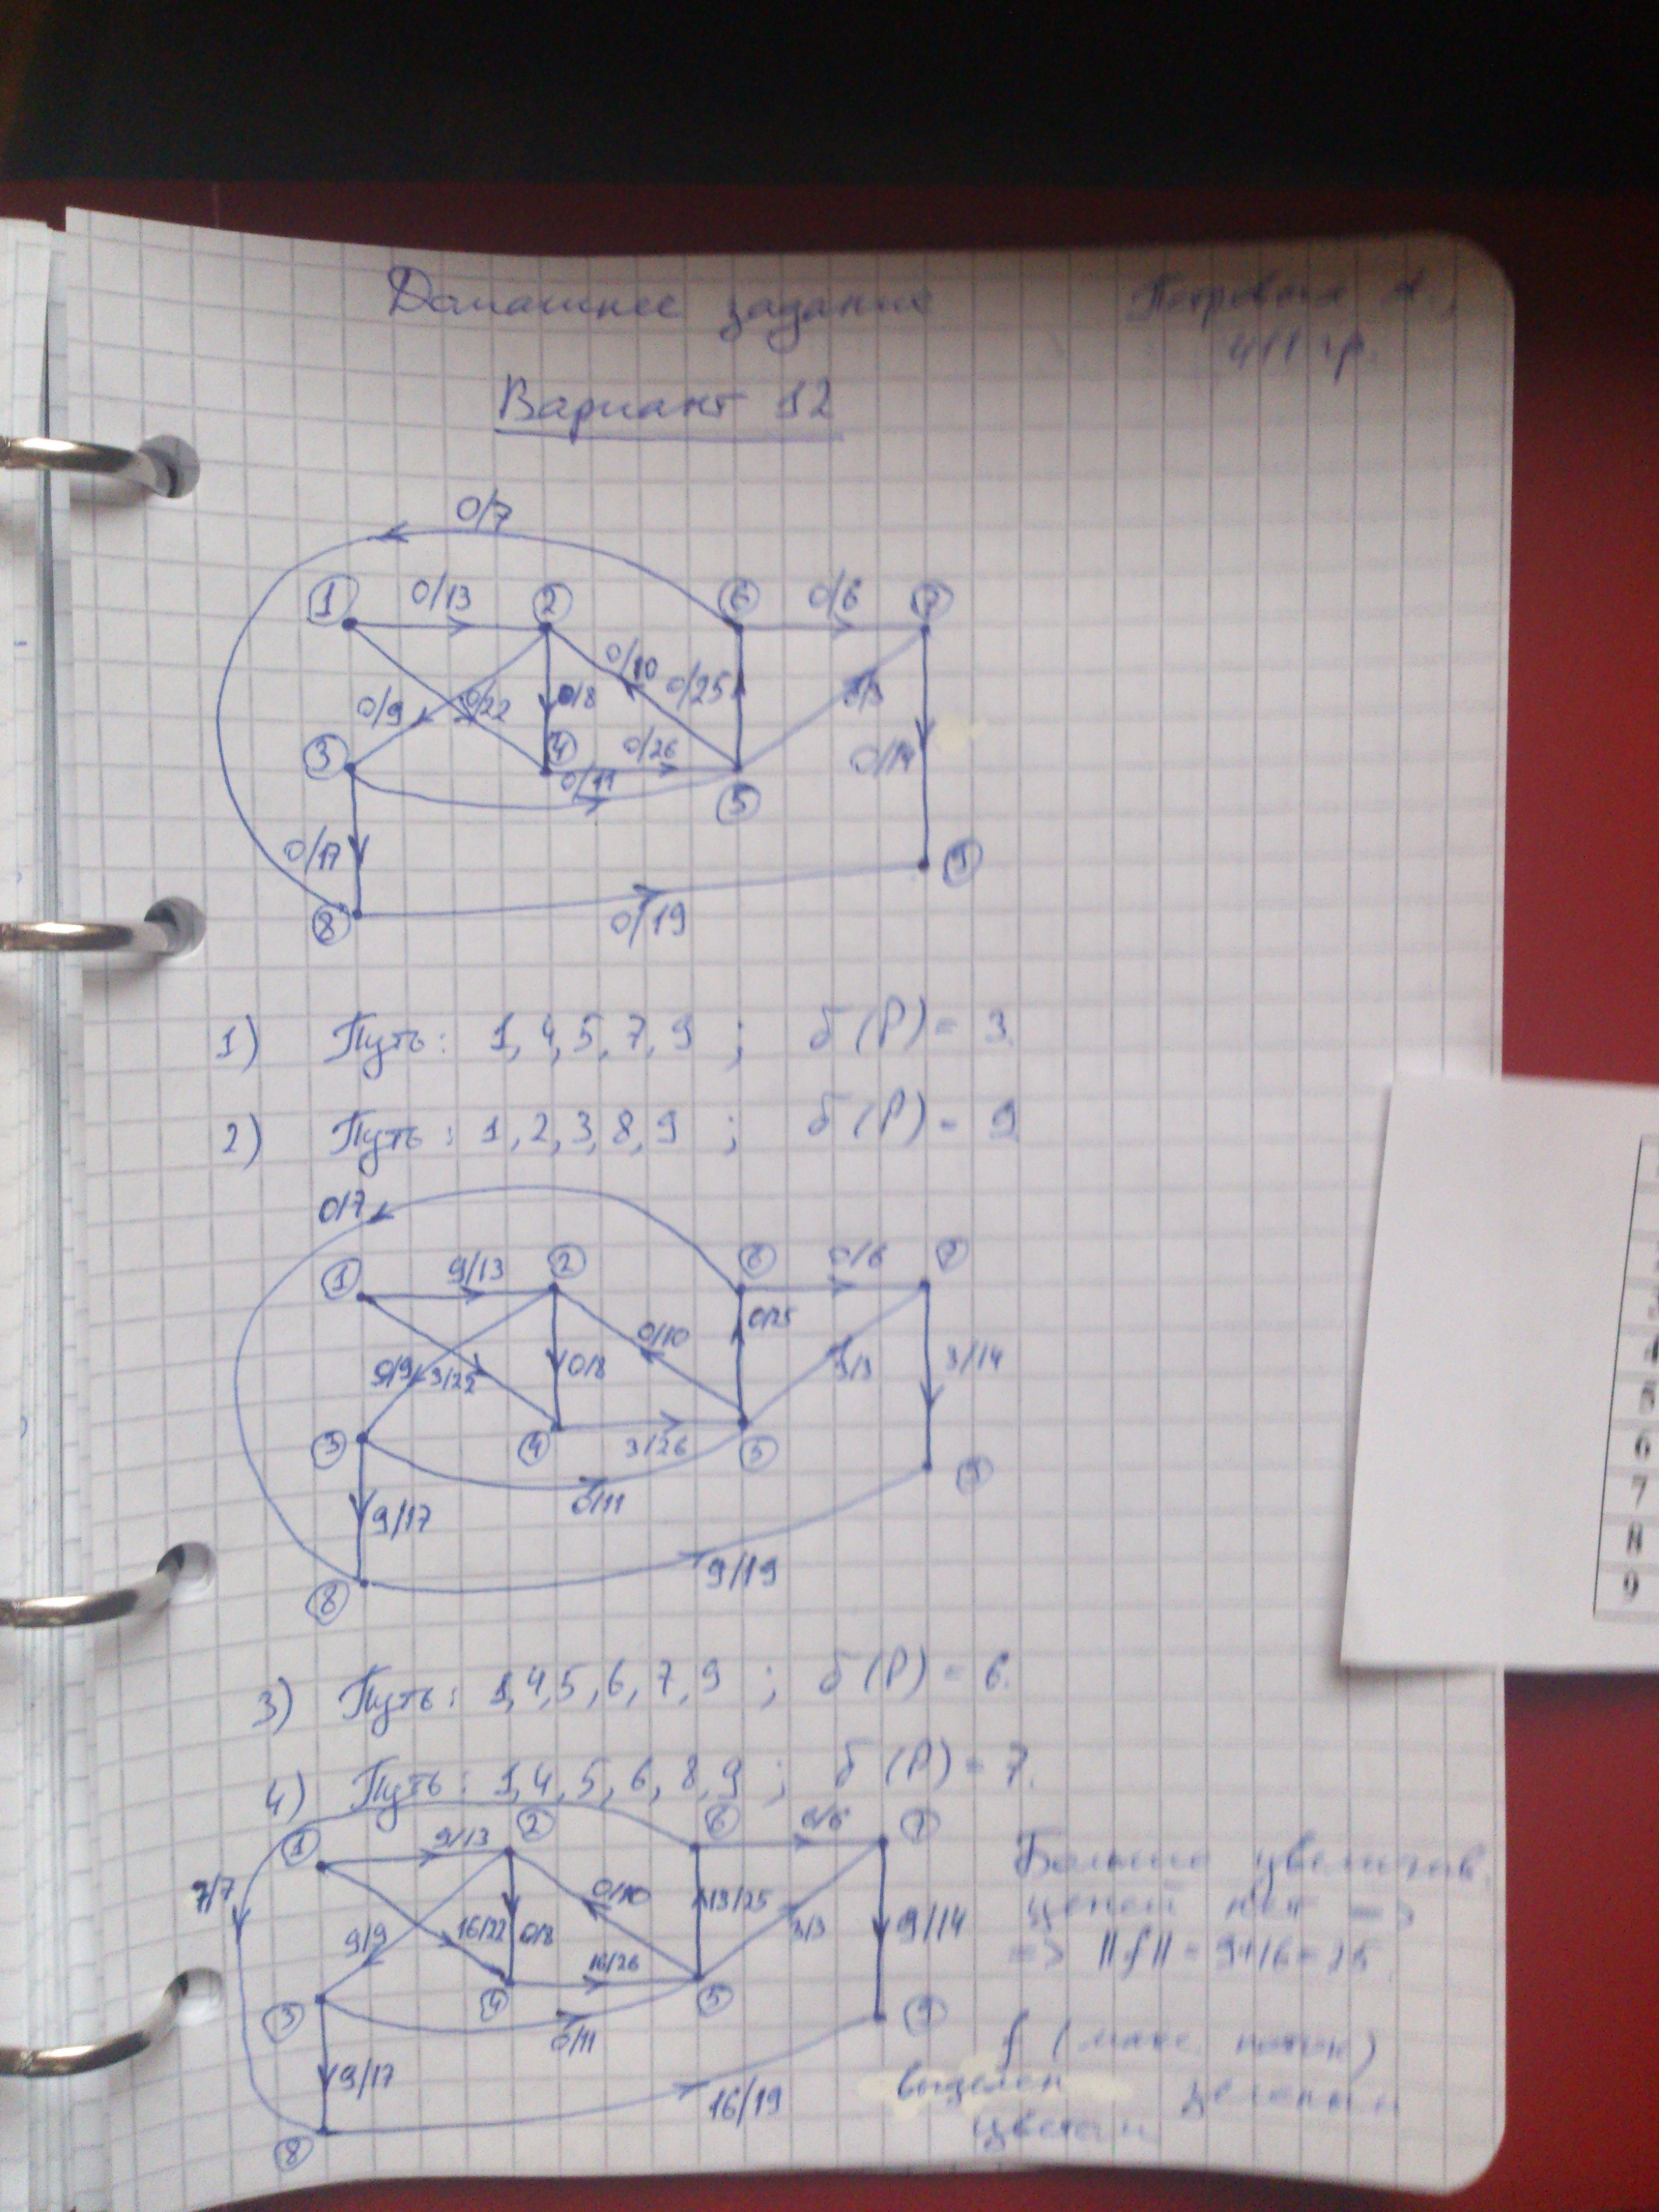 Домашнее задание
411 гр.
Вариант 12
0/7
1 0/13 2 6 0/6 7
0/10
0/9 0/22 0/8 0/25 3/3
3 4 0/26 0/14
0/11
5
0/17 9
8 0/19
1) Путь: 1, 4, 5, 7, 9 ; δ(P) = 3.
2) Путь: 1, 2, 3, 8, 9 ; δ(P) = 9
0/7
1 9/13 2 6 0/6 7
0/10 0/25
9/9 3/22 0/8 3/3 3/14
3 4 3/26 5
0/11 9
9/17
9/19
8
3) Путь: 1, 4, 5, 6, 7, 9 ; δ(P) = 6.
4) Путь: 1, 4, 5, 6, 8, 9 ; δ(P) = 7.
1 9/13 2 6 6/6 7
7/7 0/10 13/25
9/9 16/22 0/8 3/3 9/14
16/26
3 4 5 9
0/11
9/17
16/19
8
Больше увеличив.
цепей нет =>
=> ||f|| = 9+16 = 25
f (макс. поток)
выделен зеленым
цветом